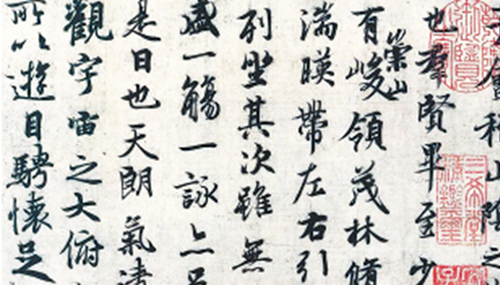 會稽山陰之
也羣賢畢至少
有崇山峻領茂林脩
湍暎帶左右引
列坐其次雖無
盛一觴一詠亦足
是日也天朗氣清
觀宇宙之大俯
所以遊目騁懷足